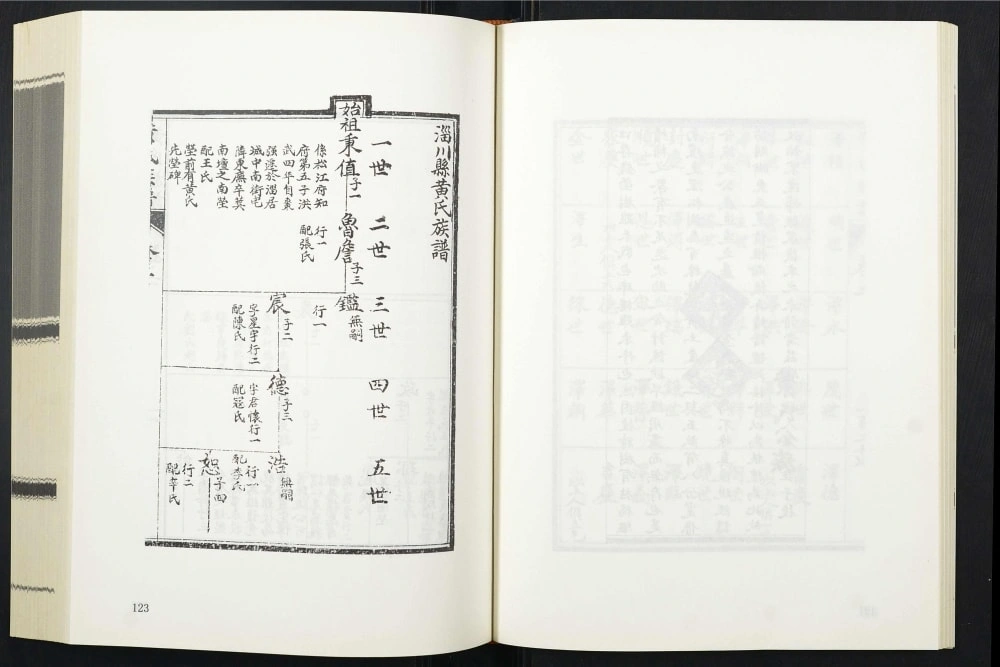 淄川縣黄氏族譜
一世 二世 三世 四世 五世
始祖秉值 子一
係松江府知
府第五子洪
武四年自棗
强遷於淄居
城中南街宅
東廡卒葬
南壇之南塋
配王氏
塋前有黄氏
先塋碑
魯詹 子三
行一
配張氏
鑑 無嗣
行一
宸 子二
字星宇行二
配陳氏
德 子三
字君懷行一
配冦氏
浩 無嗣
行一
配李氏
恕 子四
行二
配辛氏
123